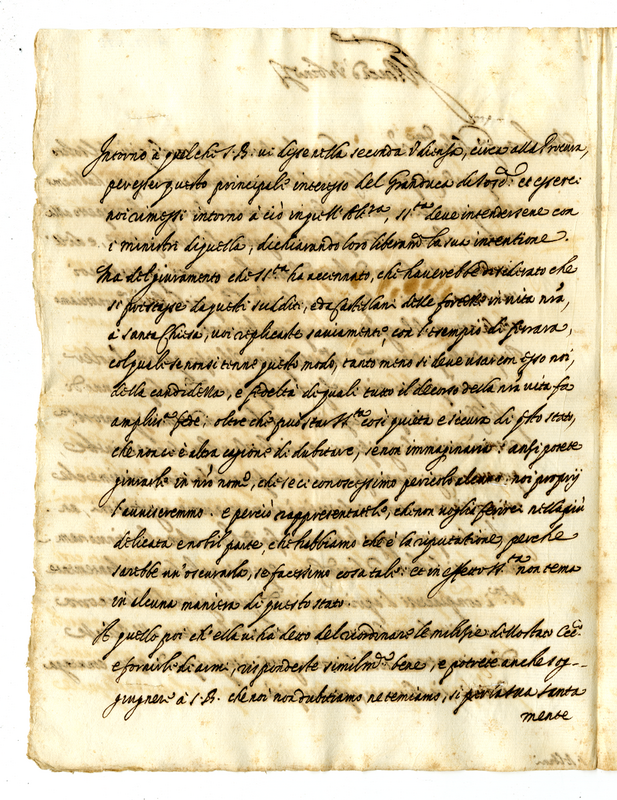 Intorno à quel che S. B. vi disse nella seconda Udienza, circa alla Procura,
per esser questo principale interesse del Granduca di Tosc.ª et essere
noi rimessi intorno à ciò in quell'Alt.za, S. S.tà deve intendersene con
i ministri di quella, dichiarando loro liberam.te la sua intentione.
Ma del giuramento che S. S.tà ha accennato, che haverebbe desiderato che
si prestasse da questi sudditi, e da Castellani delle fortezze in vita nrã,
à Santa Chiesa, voi replicaste saviamente, con l'esempio di Ferrara,
col quale se non si tenne questo modo, tanto meno si deve usar con esso noi,
della candidezza, e fedeltà di quali tutto il decorso della nrã vita fa
ampliss.ª fede: oltre che può star S. S.tà così quieta e secura di q̃sto stato,
che non ci è altra cagione di dubitare, se non immaginaria: anzi potete
giurarle in nrõ nome, che se ci conoscessimo pericolo alcuno: noi proprij
l'avviseremmo. e perciò rappresentatele, che non voglia ferirci nella più
delicata e nobil parte, che habbiamo che è la riputatione, perche
sarebbe un'oscurarla, se facessimo cosa tale: et in effetto S. S.tà non tema
in alcuna maniera di questo stato.
A quello poi ch'ella vi ha detto del riordinare le militie dello stato Ecc.
e fornirle di armi, rispondeste similm.te bene, e potrete anche sog-
giugnere à S. B. che noi non dubitiamo ne temiamo, si per la sua santa
mente